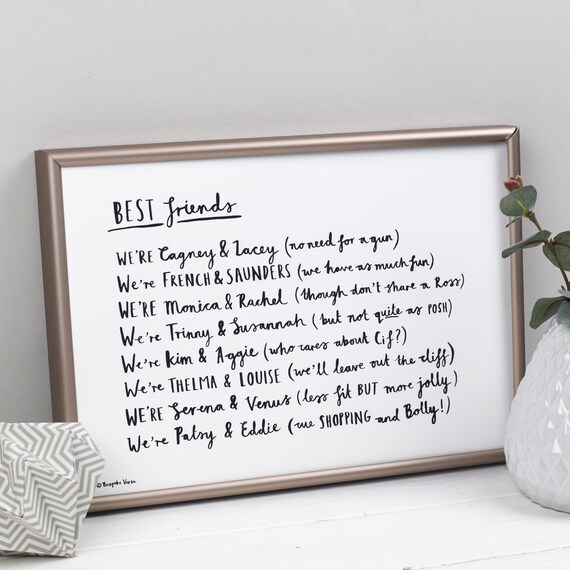 BEST friends
WE'RE Cagney & Lacey (no need for a gun)
We're FRENCH & SAUNDERS (we have as much fun)
WE'RE Monica & Rachel (though don't share a Ross)
We're Trinny & Susannah (but not quite as POSH)
We're Kim & Aggie (who cares about Cif?)
We're THELMA & LOUISE (we'll leave out the cliff)
WE'RE Serena & Venus (less fit BUT more jolly)
We're Patsy & Eddie (we SHOPPING and Bolly!)
© Bespoke Verse